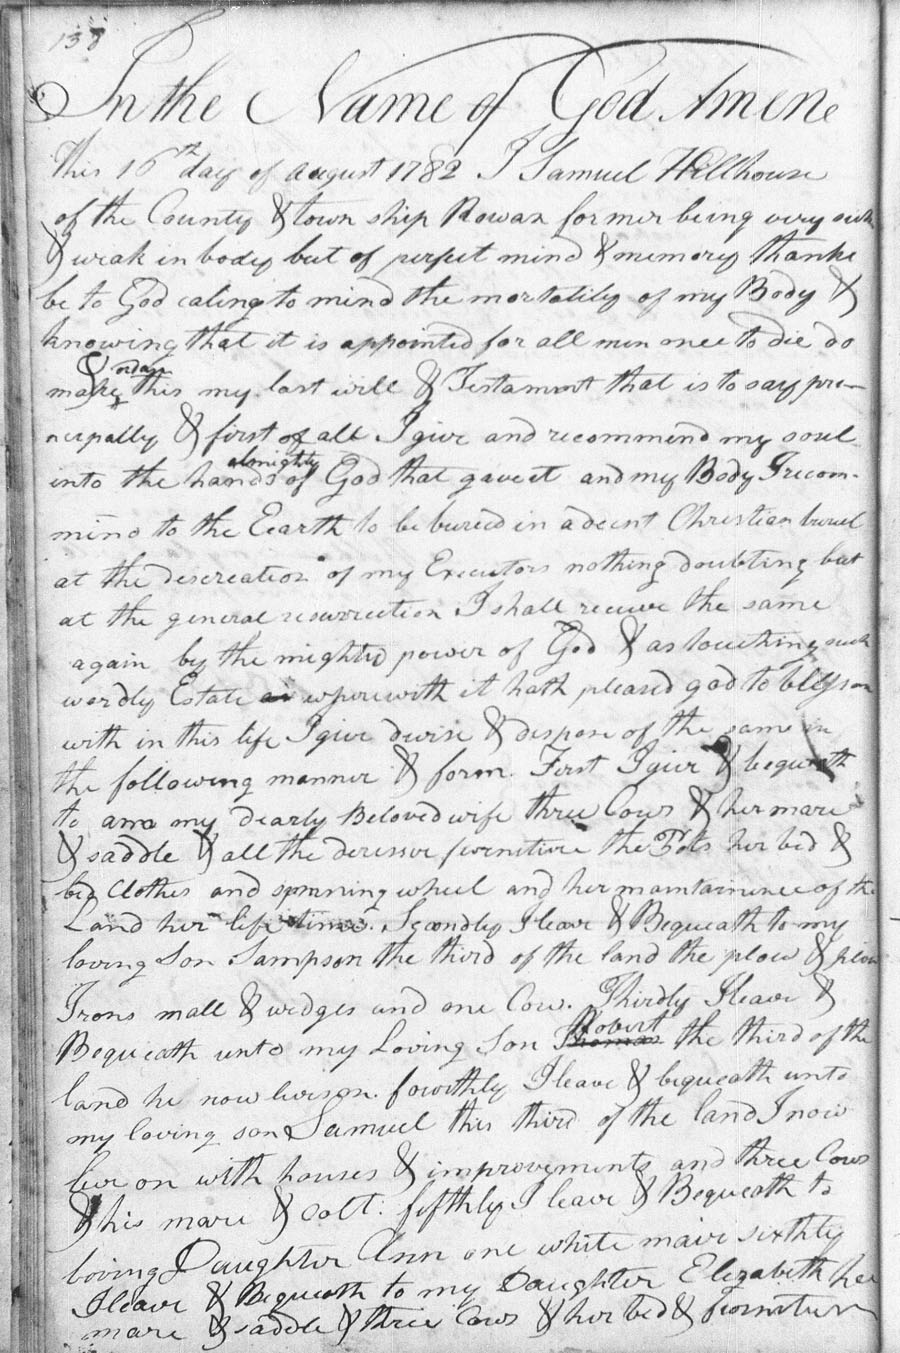 138
In the Name of God Amene
This 16th day of August 1782 I Samuel Hillhouse
of the County & town ship Rowan former being very sick
& weak in body but of perfect mind & memory thanks
be to God caling to mind the mortality of my Body &
knowing that it is appointed for all men once to die do
& ordain
make this my last will & Testament that is to say prin
cipally & first of all I give and recommend my soul
almighty
into the hands of God that gave it and my Body I recom-
mind to the Eearth to be buried in a decent Christian buriel
at the descreation of my Executors nothing doubting but
at the general resurrection I shall receive the same
again by the mighty power of God & as touching such
wordly Estate wherewith it hath pleased god to bless me
with in this life I give devise & dispose of the same in
the following manner & form. First I give & bequeath
to my dearly Beloved wife three Cows & her mare
& saddle & all the dresser furniture the Pots her bed &
bed Clothes and spinning wheel and her maintainence of the
Land her life times. Scondly I leave & Bequeath to my
loving Son Sampson the third of the land the plow & plow
Irons mall & wedges and one Cow. Thirdly I leave &
Robert
Bequeath unto my Loving Son Thomas the third of the
land he now lives on. fowrthly I leave & bequeath unto
my loving son Samuel this third of the land I now
live on with houses & improvements and three Cows
& his mare & colt. fifthly I leave & Bequeath to
loving Daughter Ann one white mair sixthly
I leave & Bequeath to my Daughter Elizabeth her
mare & saddle & three Cows & her bed & furniture